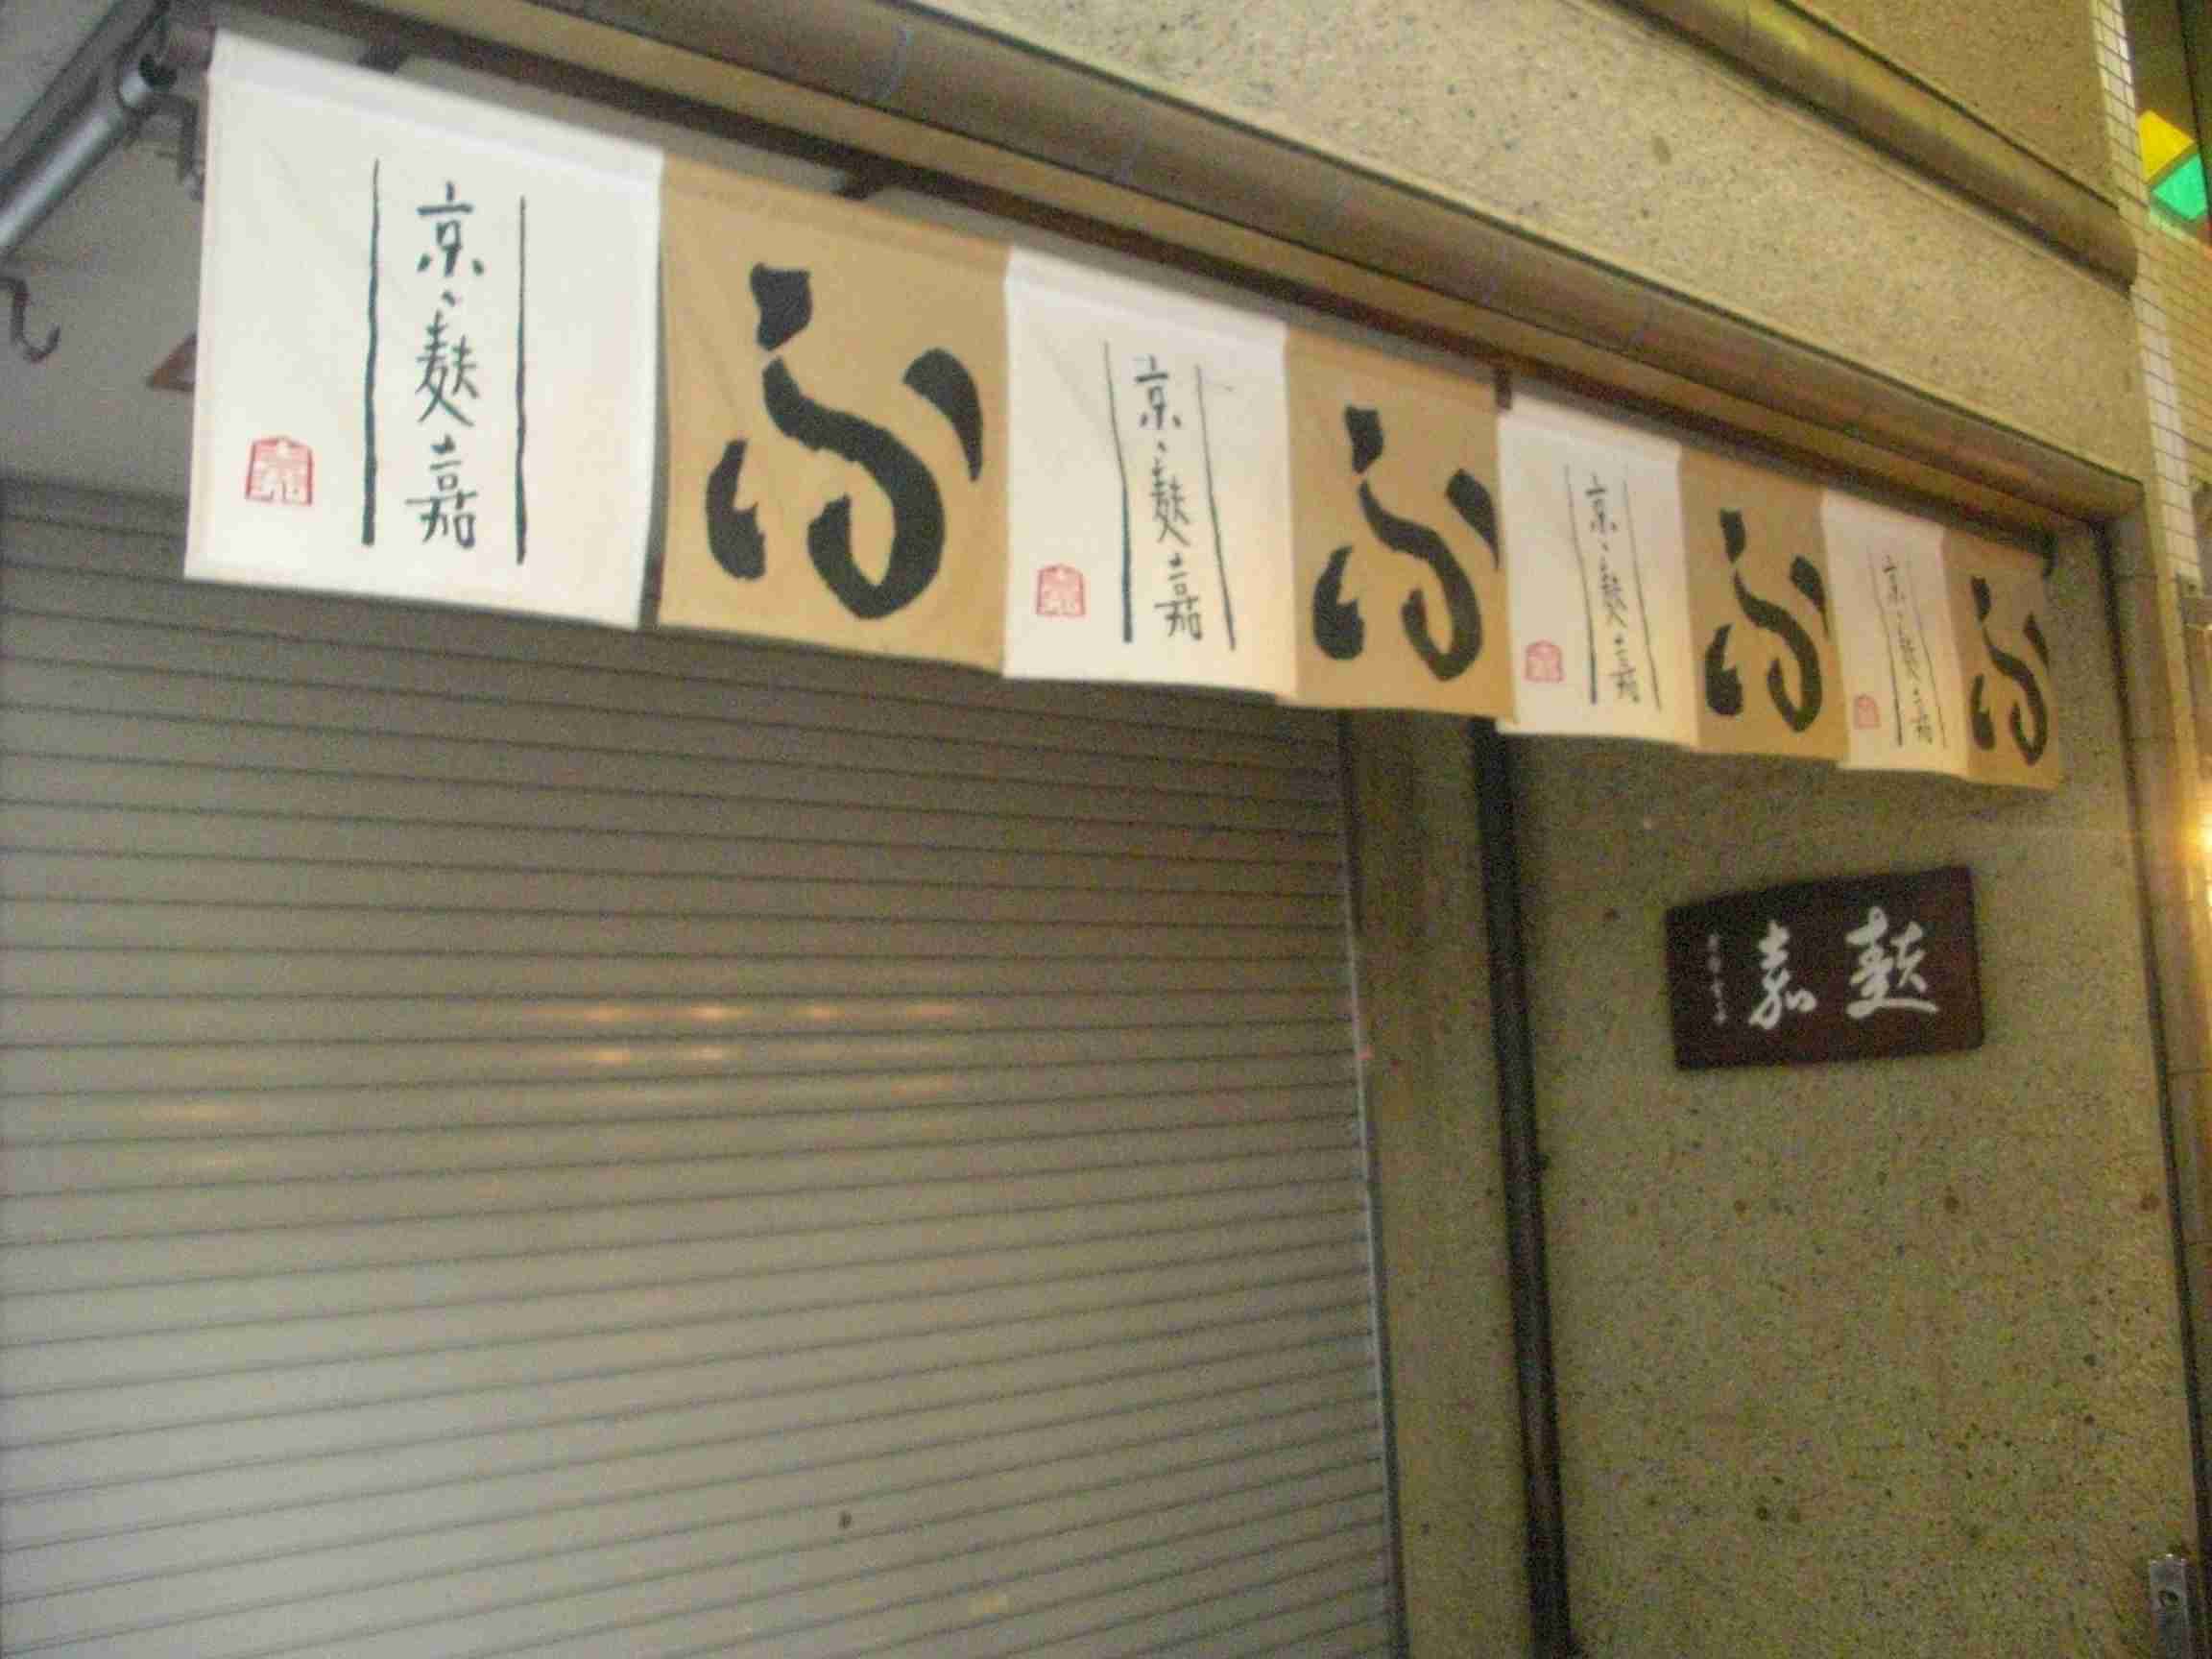 京、麩嘉
ふ
京、麩嘉
ふ
京、麩嘉
ふ
京、麩嘉
ふ
麩嘉